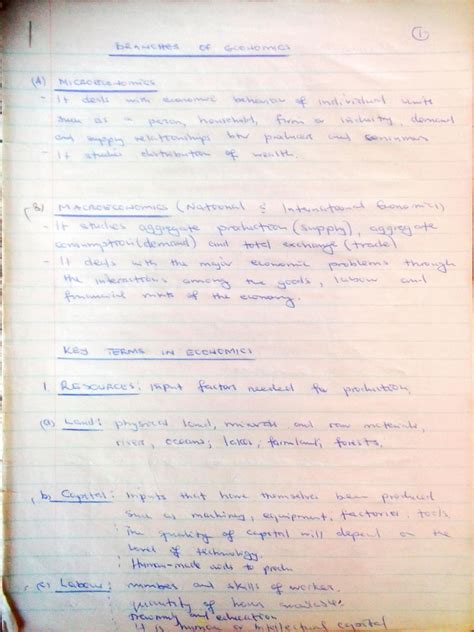 1
BRANCHES OF ECONOMICS
(A) MICROECONOMICS
- It deals with economic behavior of individual units
such as a person, household, firm or industry, demand
and supply relationships btw producers and consumers
- It studies distribution of wealth.
(B) MACROECONOMICS (National & International Economics)
- It studies aggregate production (supply), aggregate
consumption (demand) and total exchange (trade)
- It deals with the major economic problems through
the interactions among the goods, labour and
financial mkts of the economy.
KEY TERMS IN ECONOMICS
1. RESOURCES: input factors needed for production
(a) Land: physical land, minerals and raw materials,
rivers, oceans, lakes, farmland, forests.
(b) Capital: inputs that have themselves been produced
such as machinery, equipment, factories, tools
: The quality of capital will depend on the
level of technology.
: Human-made aids to produ
(c) Labour: number and skills of worker.
quantity of hours available
training and education
it is human or intellectual capital